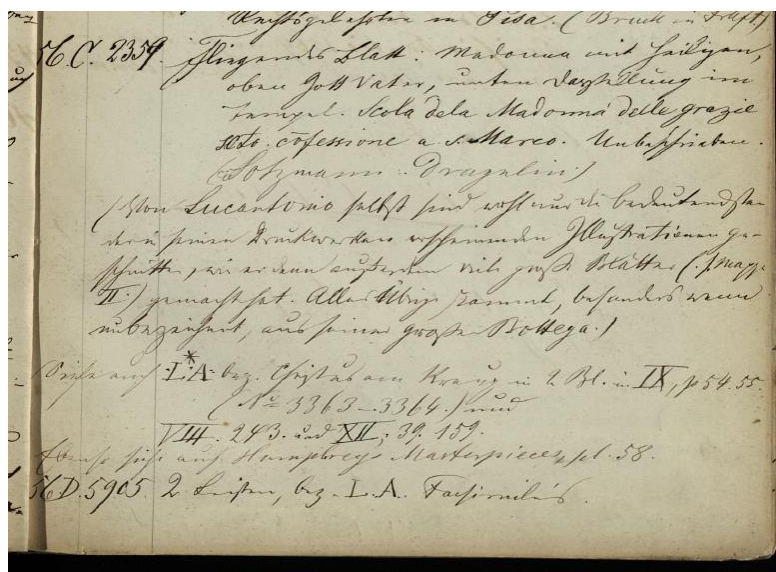 Rechtsgelehrten in Pisa. (Bruch in Druft)
56.C. 2359. Fliegendes Blatt: Madonna mit Heiligen,
oben Gott Vater, unten Darstellung im
Tempel. Scola dela Madonna delle grazie
cōfessione a s. Marco. Unbeschrieben.
(Sotzmann: Drugulin.)
(Von Lucantonio selbst sind wohl nur die bedeutendsten
der in seinen Druckwerken erscheinenden Illustrationen ge-
schnitten, wie er denn außerdem viele große Blätter (s. Mappe
II.) gemacht hat. Alles Übrige stammt, besonders wenn
unbezeichnet, aus seiner großen Bottega.)
Siehe auch L*A bez. Christus am Kreuz in 2 Bl. in IX, p 54. 55.
(No 3363–3364.) und
VIII. 243. und XII: 39. 159.
Ebenso siehe auch Humphreys Masterpieces, pl. 58.
56D. 5905. 2 Leisten, bez. L.A. Facsimiles.